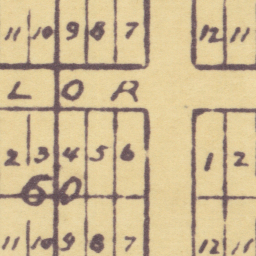 11 10 9 8 7 12 11
L O R
2 3 4 5 6 1 2
60
11 10 9 8 7 12 11